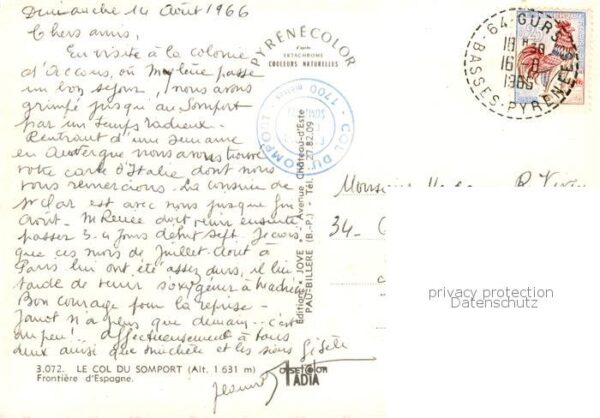 Dimanche 14 Août 1966
Chers amis,
En visite à la colonie
d'Accous, où Mylène passe
un bon séjour, nous avons
grimpé jusqu'au Somport
par un temps radieux.
Rentrant d'une semaine
en Auvergne nous avons trouvé
votre carte d'Italie dont nous
vous remercions. La cousine de
St Clar est avec nous jusque fin
Août. M Renée doit venir ensuite
passer 3-4 jours début Sept. Je crois
que ces mois de Juillet-Août à
Paris lui ont été assez durs, il lui
tarde de venir s'oxygéner à
Bon courage pour la reprise -
Janot n'a plus que demain.. c'est
un peu! .. Affectueusement à tous
deux ainsi que Michèle et les siens Gisèle
3.072. LE COL DU SOMPORT (Alt. 1 631 m)
Frontière d'Espagne.
PYRÉNÉCOLOR
d'après
EKTACHROME
COULEURS NATURELLES
COL DU SOMPORT
1700 mètres
Editions JOVE - Avenue Château-d'Este
PAU-BILLÈRE (B.-P.) - Tél. 27.82.09
64-GURS
18 H30
16-8
1966
BASSES-PYRENEES
Monsieur
34-
privacy protection
Datenschutz